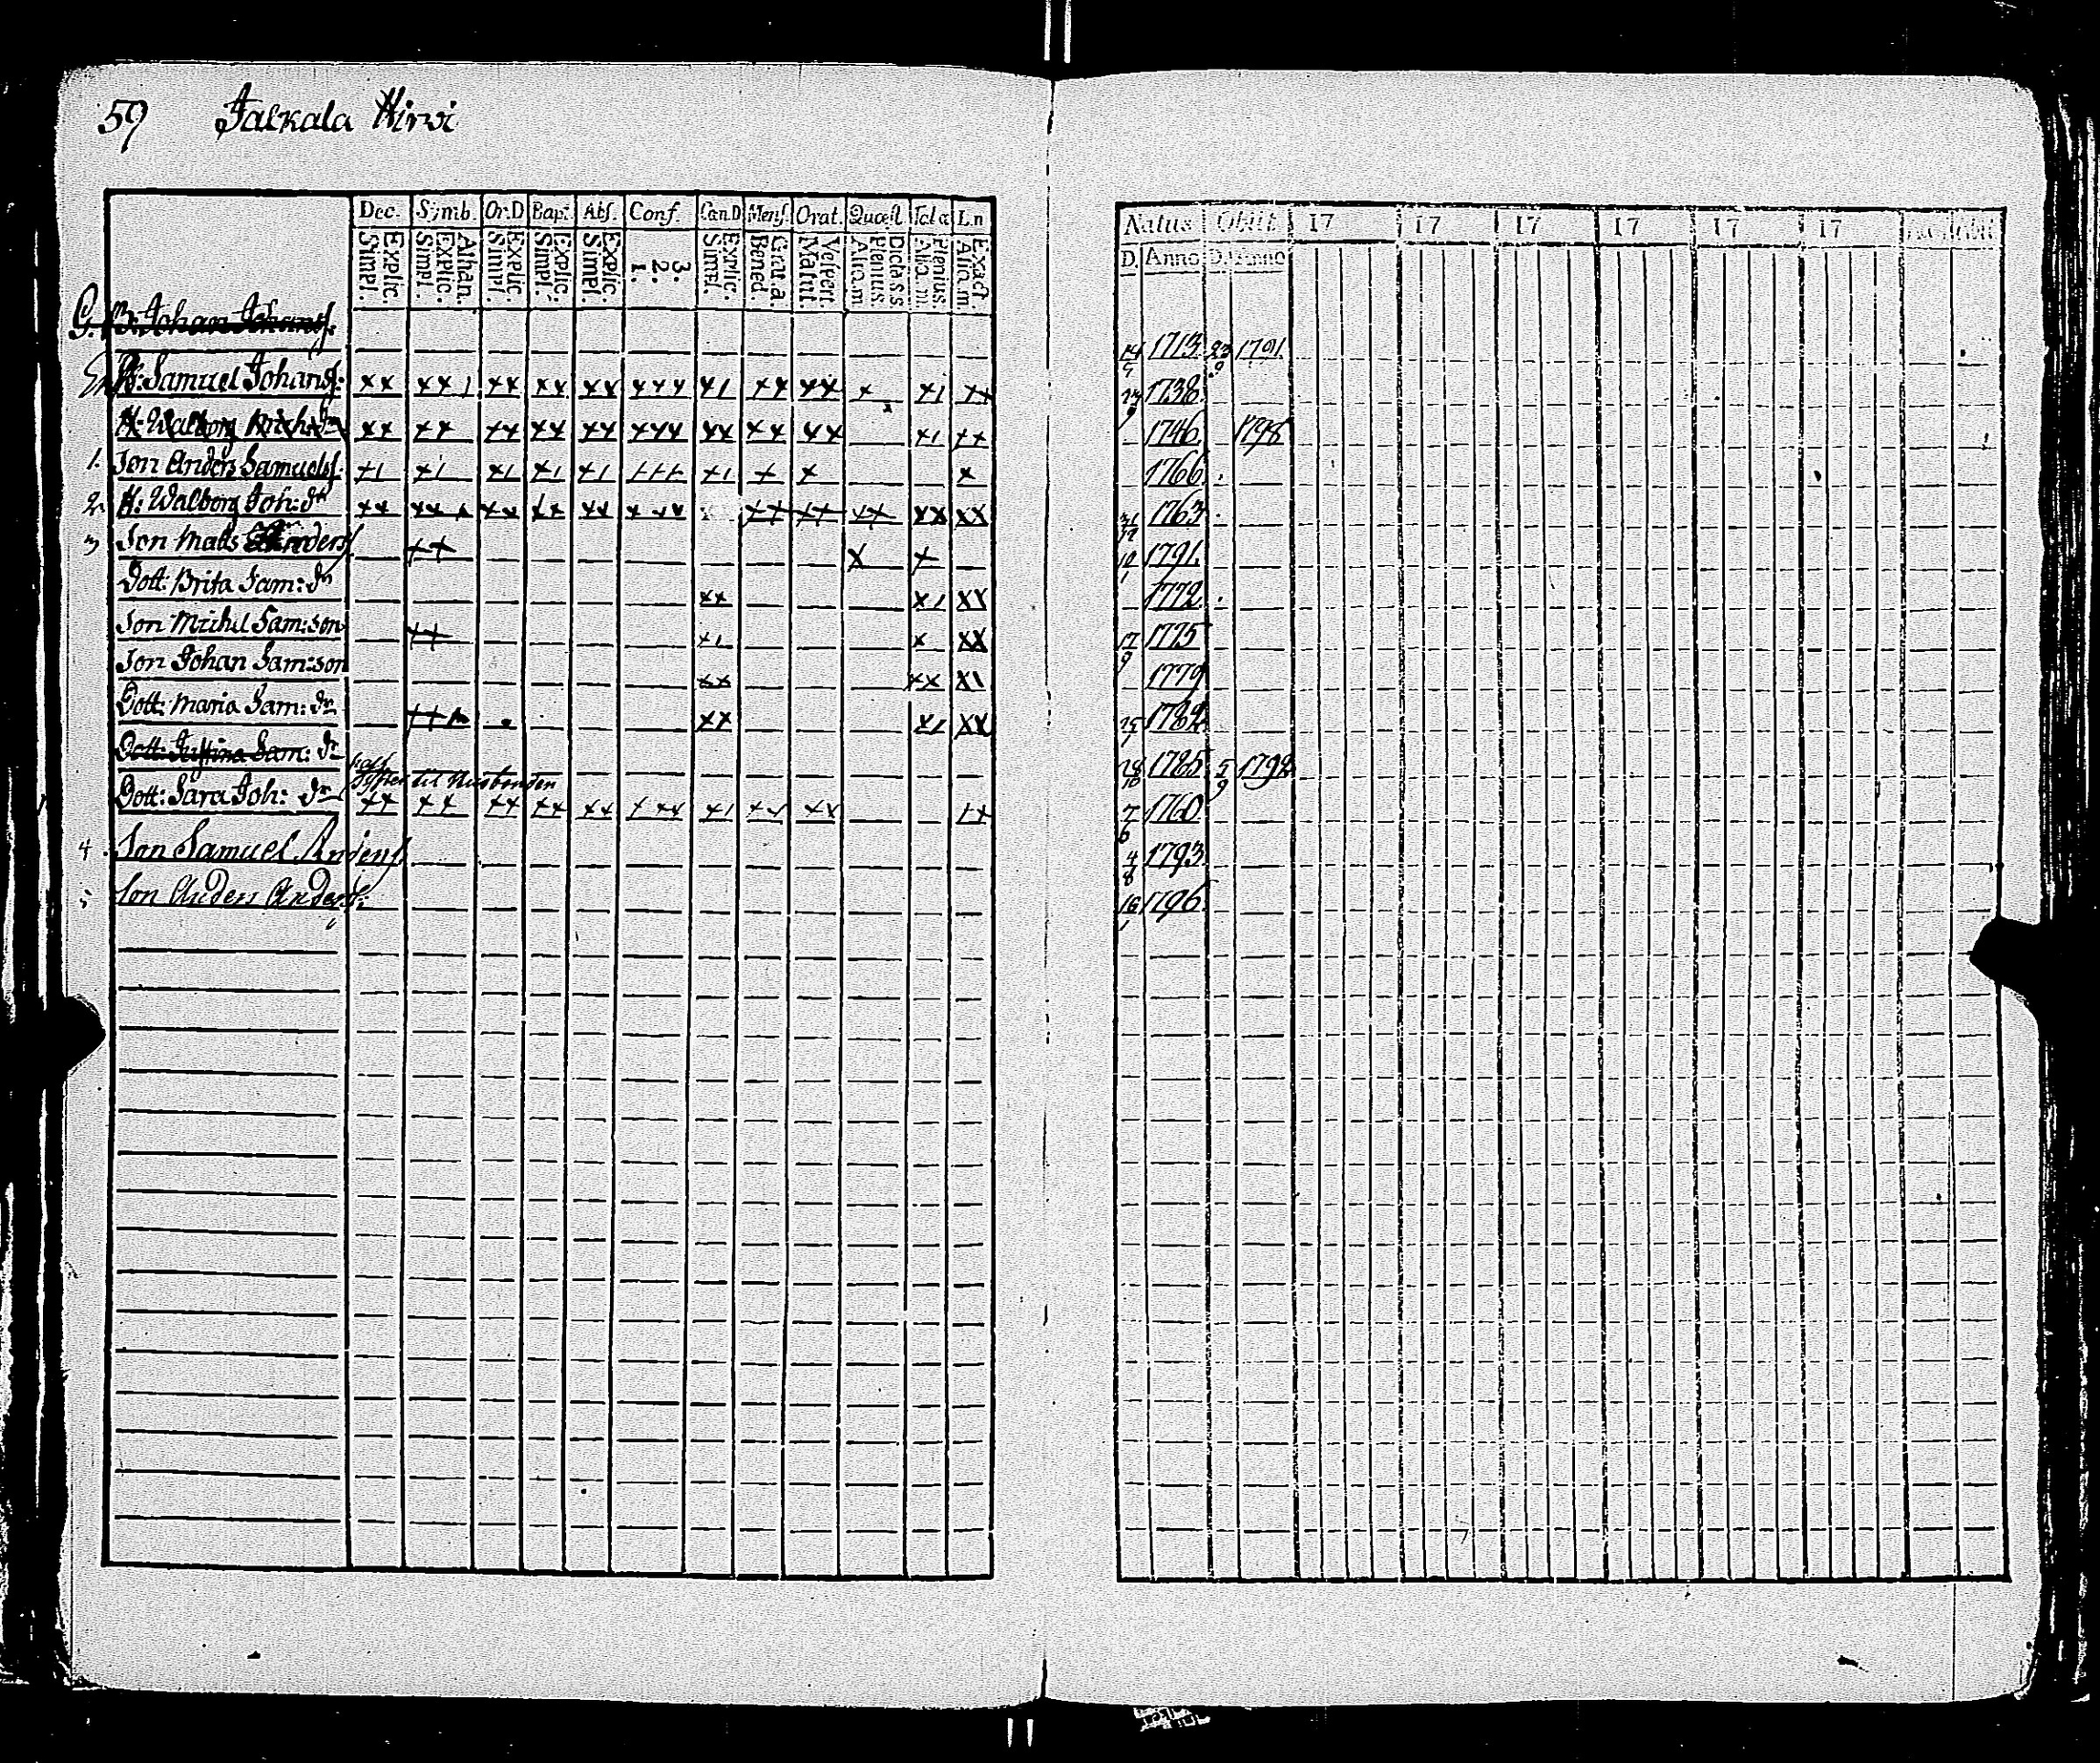 59 Jalkala Hirvi
Dec. Symb. Or.D Bapt. Abs. Conf. Can.D Mens. Orat. Quæst. Tal a L.n
Explic. Simpl. Athan. Explic. Simpl. Explic. Simpl. Explic. Simpl. Explic. Simpl. 3. 2. 1. Explic. Simpl. Grat.a. Bened. Vespert. Matut. Dicta s.s. Plenius. Aliq.m. Plenius. Aliq.m. Exact. Aliq.m.
Natus Obiit 17 17 17 17 17 17
D. Anno D. Anno
G. B. Johan Johansf. 14 1713 23 9 1791.
B: Samuel Johansf: xx xx1 xx xx xx xxx x1 xx xx x x1 xx 1738.
H: Walborg Mich:dr xx xx xx xx xx xxx xx xx xx x1 xx 1746. 1798
1. Son Anders Samuelsf. x1 x1 x1 x1 x1 x1 x x x 1766.
2. H: Walborg Joh: dr xx xx xx xx xx xx xx xx xx xx 1763.
3 Son Matts Andersf xx x x 10 1 1791.
Dott: Brita Sam: dr xx x1 xx 1772.
Son Michel Sam:son xx x1 x xx 17 9 1775
Son Johan Sam:son xx xx x1 1779
Dott: Maria Sam: dr xx x1 xx 25 1 1782
Dott: Justina Sam: dr 18 10 1785 5 9 1792
Syster til Husbonden
Dott: Sara Joh: dr xx xx xx xx xx xxx x1 xx xx xx 7 6 1760.
4. Son Samuel Andersf. 4 8 1793
5 Son Anders Andersf: 16 1 1796.